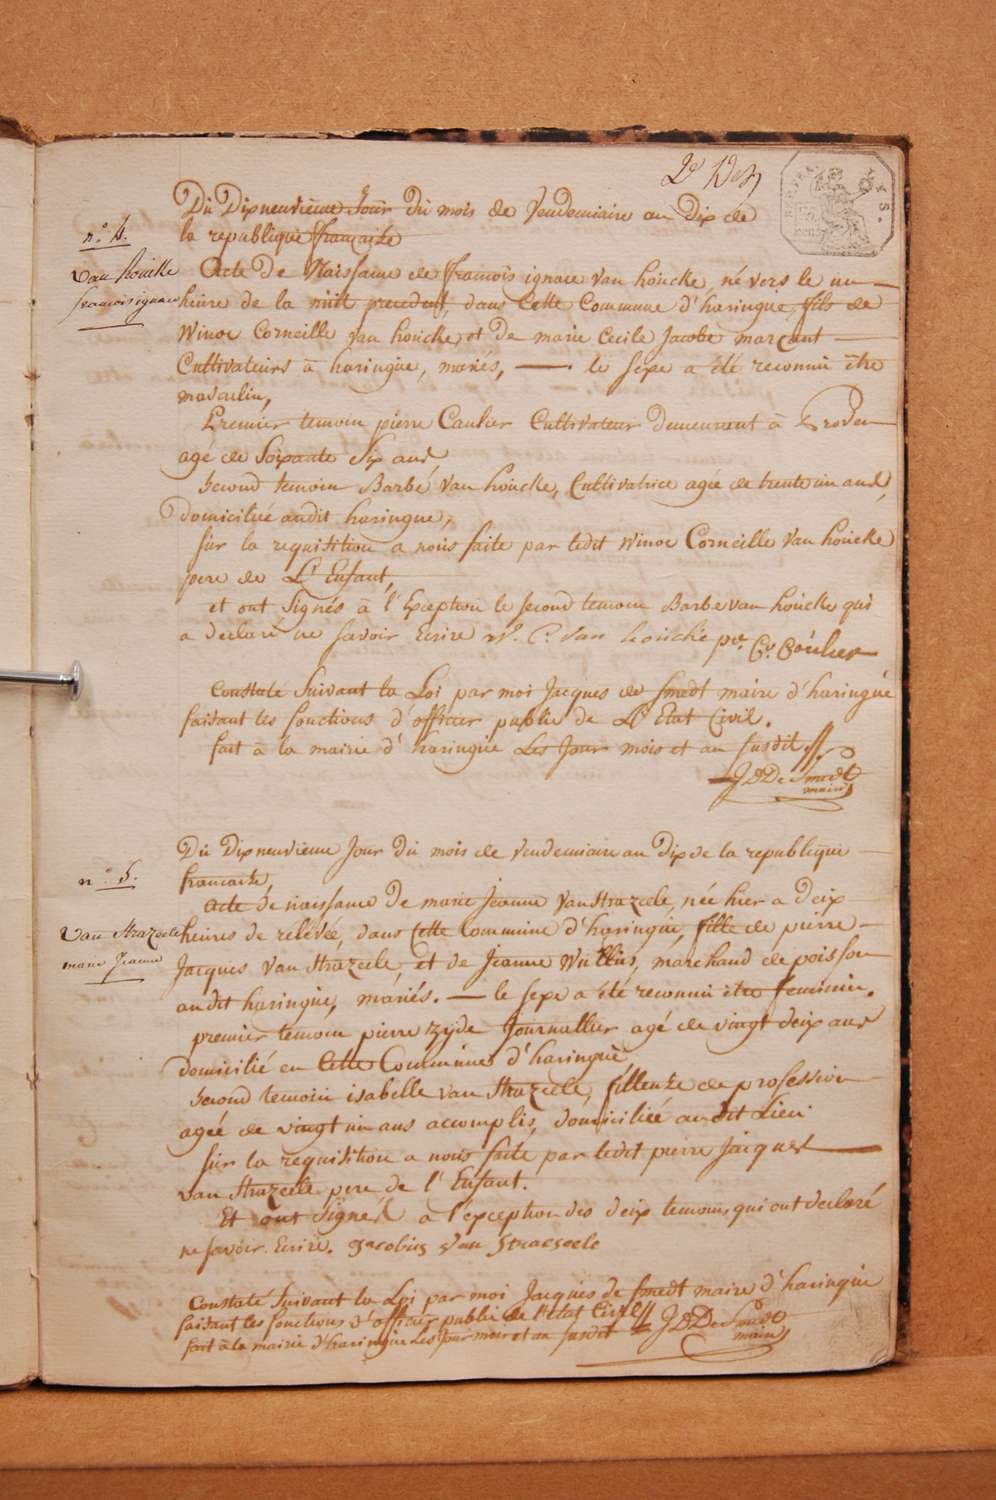 Du Dixneuvieme Jour du mois de Vendemiaire an Dix de
la republique francaise
n.º 4.
van houcke
francois ignace
Acte De Naissance de francois ignace van houcke, né vers le un
heure de la nuit precedent, dans Cette Commune d'haringue, fils de
Winoc Corneille van houcke, et de marie Cecile Jacobe marcant
Cultivateurs à haringue, mariés, le sexe a été reconnu être
masculin,
Premier temoin pierre Caulier Cultivateur demeurant à
agé de Soixante Six ans
Second temoin Barbe van houcke, Cultivatrice agée de trente un ans,
domiciliée audit haringue,
sur la requisition a nous faite par ledit winoc Corneille van houcke
pere de L'Enfant,
et ont signés à l'Exception le second temoin Barbe van houcke qui
a declaré ne savoir Ecrire W. C. van houcke
Constaté Suivant la Loi par moi Jacques de Smedt maire d'haringue
faisant les fonctions d'officier public de L'Etat Civil.
fait à la mairie d'haringue Les Jour mois et an susdit
J De Smedt
maire
Du Dixneuvieme Jour du mois de vendemiaire an Dix de la republique
francaise
n.º 5.
van Strazeele
marie Jeanne
Acte de naissance de marie Jeanne van Strazeele, née hier a deix
heures de relevée, dans Cette Commune d'haringue, fille de pierre
Jacques van Strazeele, et de Jeanne Wullus, marchand de poisson
audit haringue, mariés. le sexe a été reconnu être feminin.
premier temoin pierre zyde Journallier agé de vingt deix ans
domicilié en Cette Commune d'haringue
Second temoin isabelle van Strazeele, filleuse de profession
agée de vingt un ans accomplis, domiciliée audit Lieu
sur la requisition a nous faite par ledit pierre Jacques
van Strazeele pere de l'Enfant.
Et ont signés a l'exception des deix temoins qui ont declaré
ne savoir Ecrire. Jacobus van Straeseele
Constaté Suivant la Loi par moi Jacques de Smedt maire d'haringue
faisant les fonctions d'officier public de l'Etat Civil
fait à la mairie d'haringue Les Jour mois et an susdit J De Smedt
maire